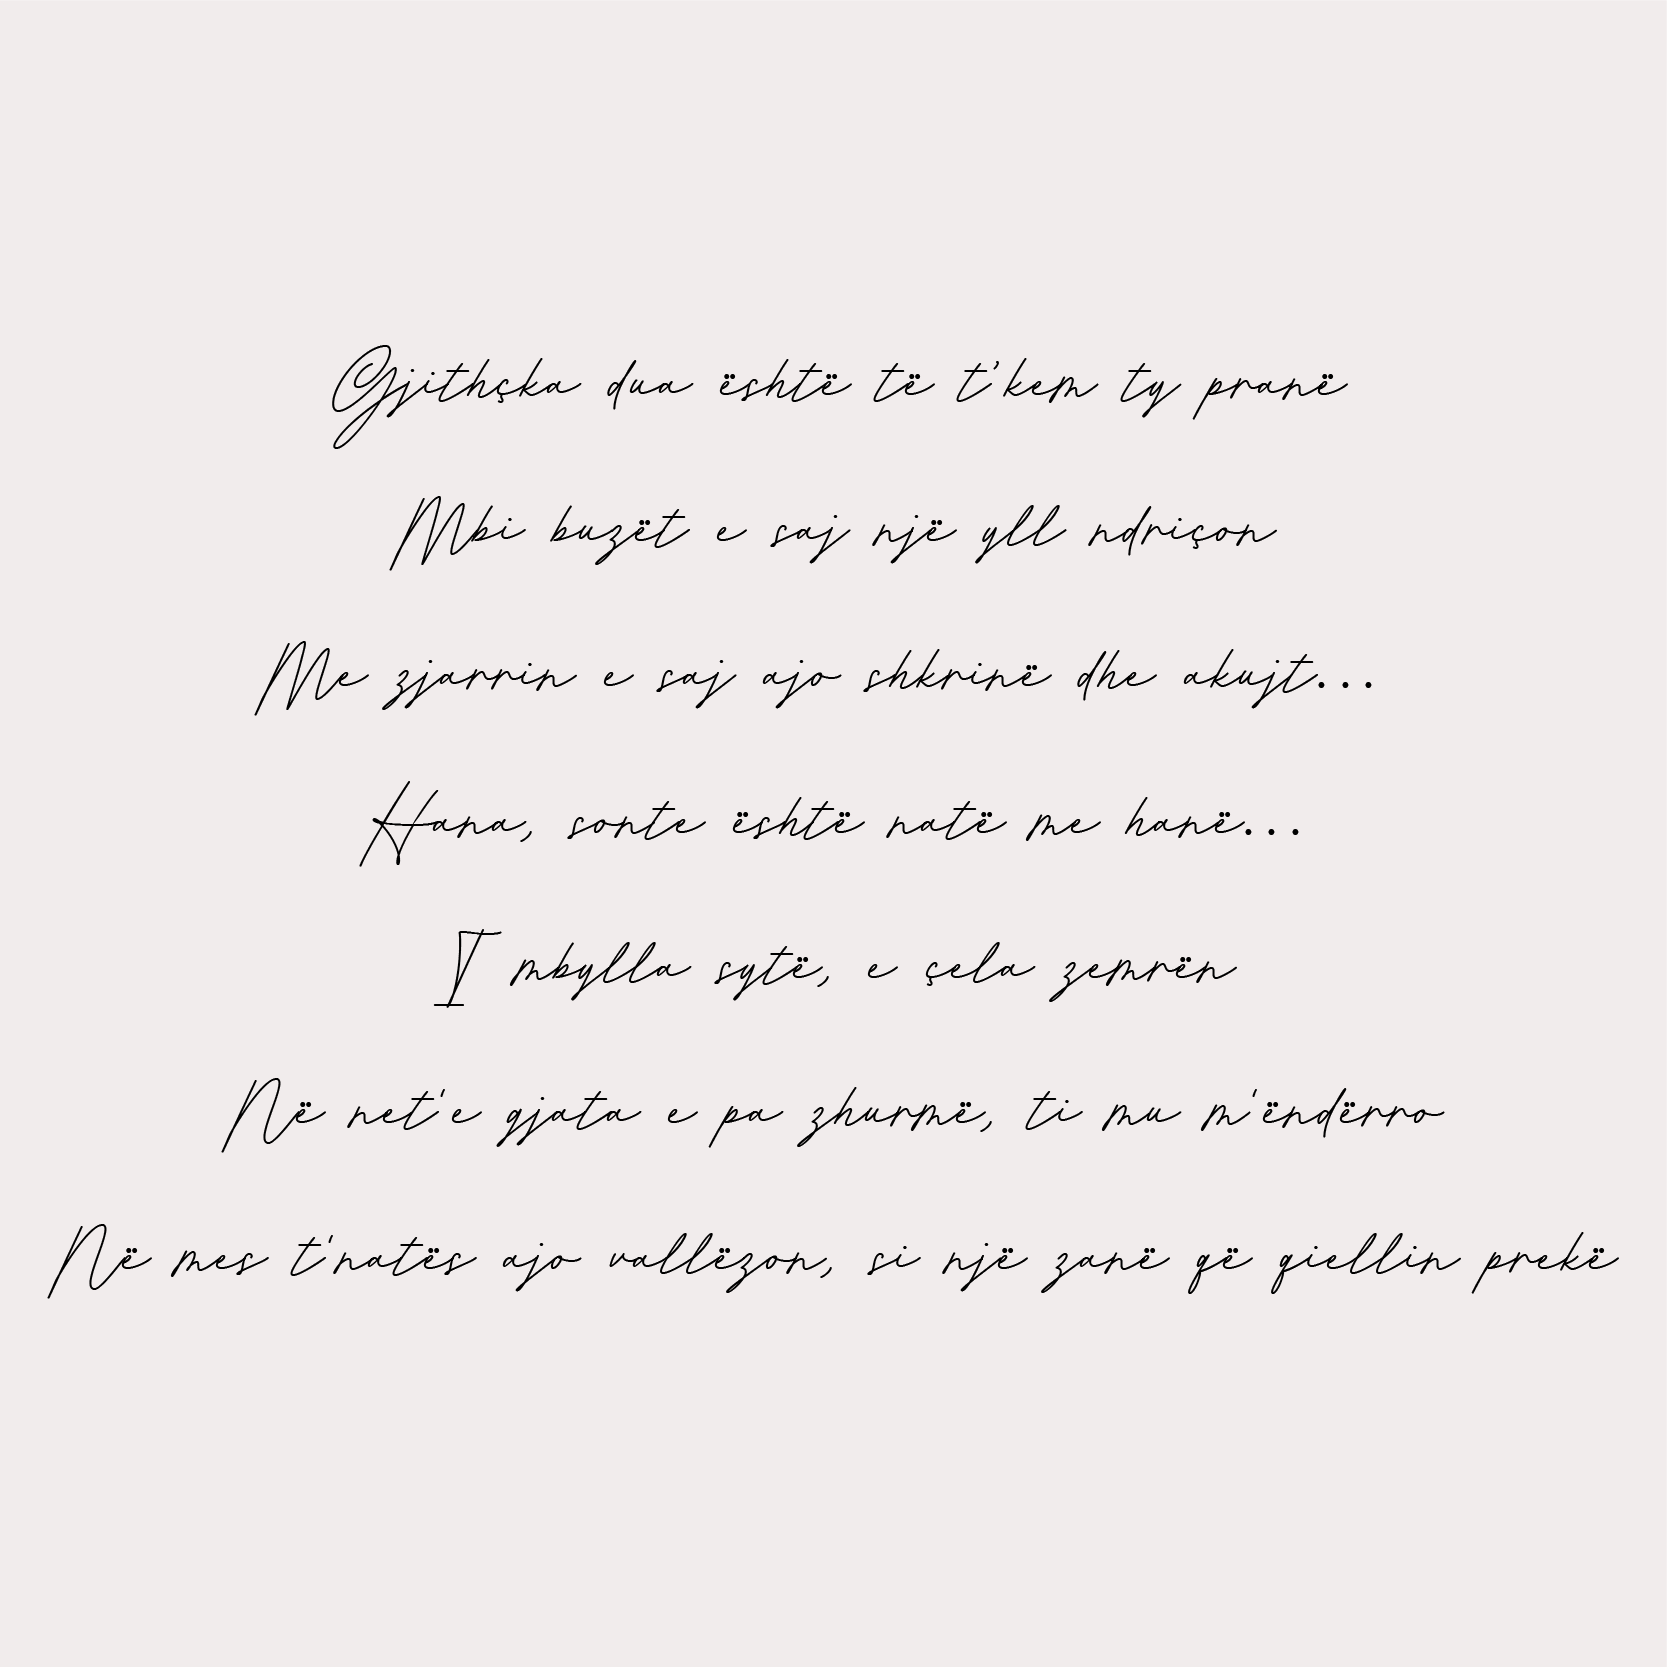 Gjithçka dua është të t'kem ty pranë
Mbi buzët e saj një yll ndriçon
Me zjarrin e saj ajo shkrinë dhe akujt...
Hana, sonte është natë me hanë...
I mbylla sytë, e çela zemrën
Në net'e gjata e pa zhurmë, ti mu m'ëndërro
Në mes t'natës ajo vallëzon, si një zanë që qiellin prekë